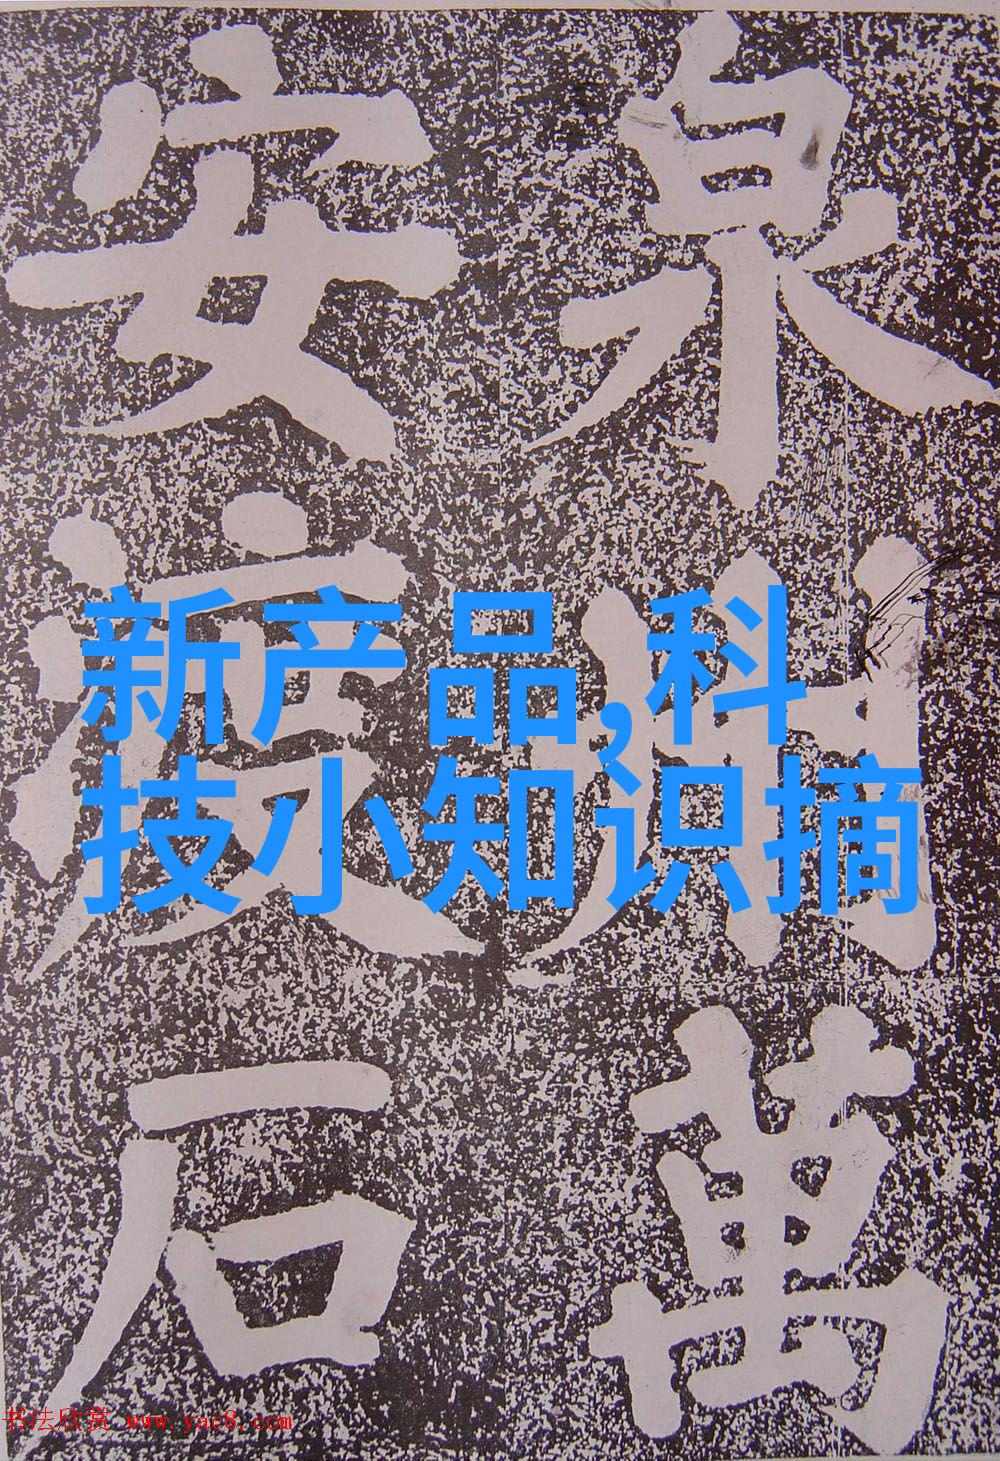 泉州萬
安渡石
新产品,科
技小知识摘
书法欣赏 www.yac8.com